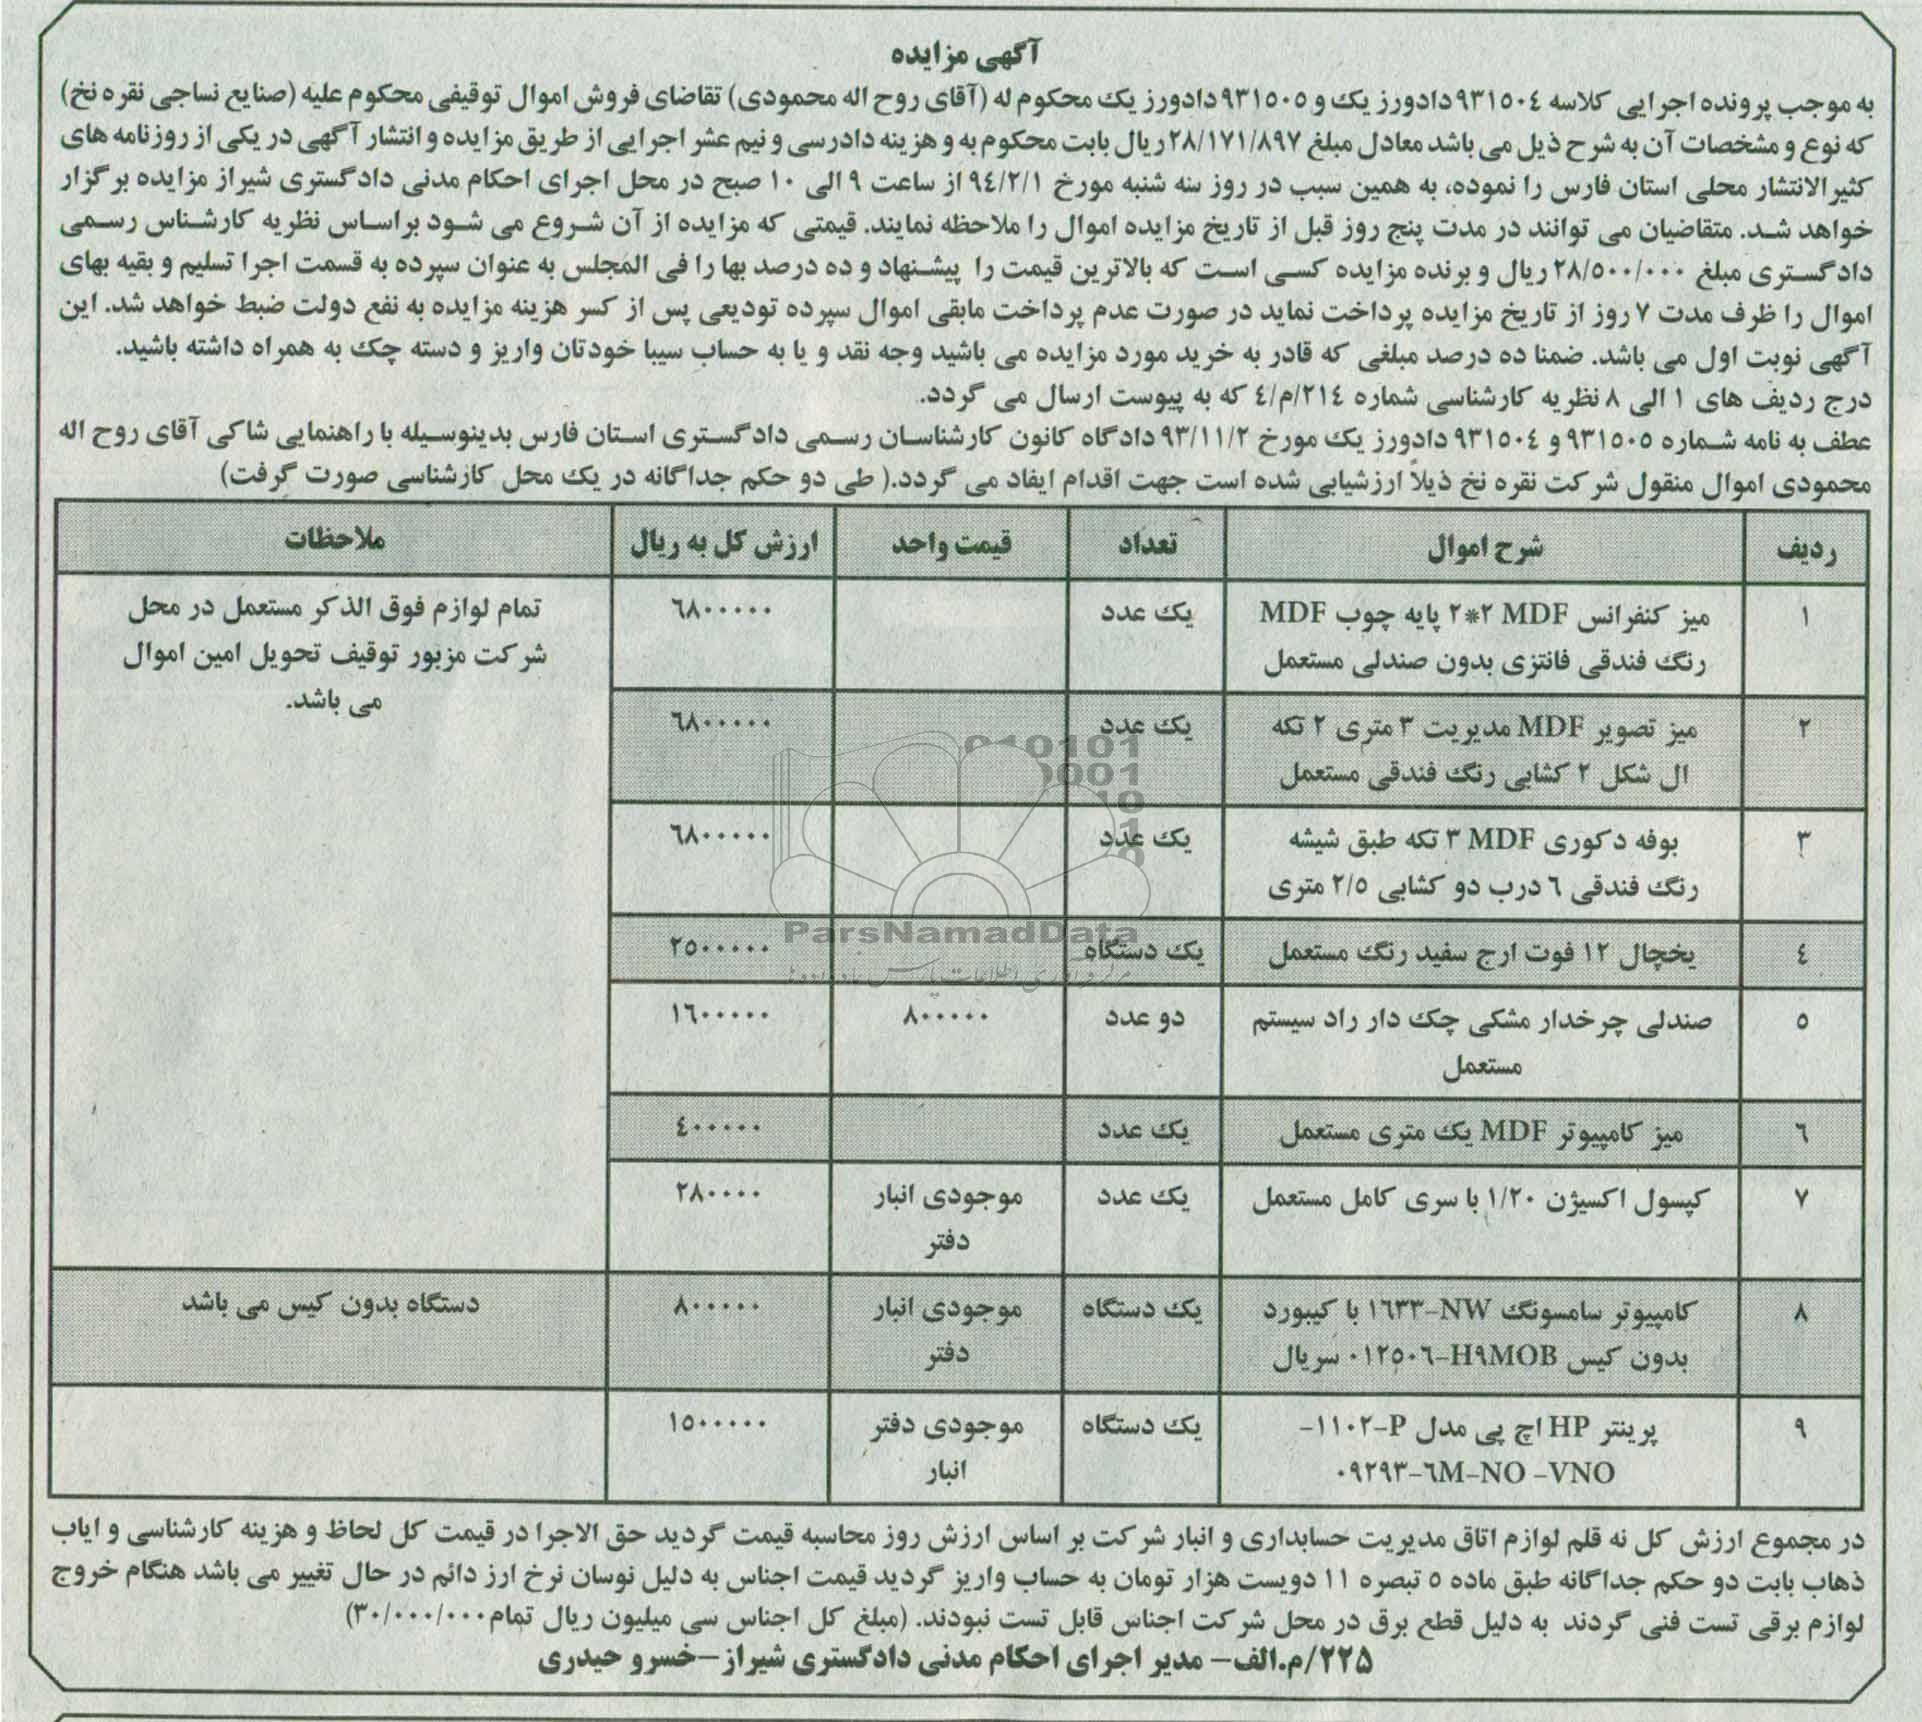 آگهی مزایده
به موجب پرونده اجرایی کلاسه ۹۳۱۵۰۴ دادورز یک و ۹۳۱۵۰۵ دادورز یک محکوم له (آقای روح اله محمودی) تقاضای فروش اموال توقیفی محکوم علیه (صنایع نساجی نقره نخ)
که نوع و مشخصات آن به شرح ذیل می باشد معادل مبلغ ۲۸/۱۷۱/۸۹۷ ریال بابت محکوم به و هزینه دادرسی و نیم عشر اجرایی از طریق مزایده و انتشار آگهی در یکی از روزنامه های
کثیرالانتشار محلی استان فارس را نموده، به همین سبب در روز سه شنبه مورخ ۹۴/۲/۱ از ساعت ۹ الی ۱۰ صبح در محل اجرای احکام مدنی دادگستری شیراز مزایده برگزار
خواهد شد. متقاضیان می توانند در مدت پنج روز قبل از تاریخ مزایده اموال را ملاحظه نمایند. قیمتی که مزایده از آن شروع می شود براساس نظریه کارشناس رسمی
دادگستری مبلغ ۲۸/۵۰۰/۰۰۰ ریال و برنده مزایده کسی است که بالاترین قیمت را پیشنهاد و ده درصد بها را فی المجلس به عنوان سپرده به قسمت اجرا تسلیم و بقیه بهای
اموال را ظرف مدت ۷ روز از تاریخ مزایده پرداخت نماید در صورت عدم پرداخت مابقی اموال سپرده تودیعی پس از کسر هزینه مزایده به نفع دولت ضبط خواهد شد. این
آگهی نوبت اول می باشد. ضمنا ده درصد مبلغی که قادر به خرید مورد مزایده می باشید وجه نقد و یا به حساب سیبا خودتان واریز و دسته چک به همراه داشته باشید.
درج ردیف های ۱ الی ۸ نظریه کارشناسی شماره ۲۱۴/م/٤ که به پیوست ارسال می گردد.
عطف به نامه شماره ۹۳۱۵۰۵ و ۹۳۱۵۰۴ دادورز یک مورخ ۹۳/۱۱/۲ دادگاه کانون کارشناسان رسمی دادگستری استان فارس بدینوسیله با راهنمایی شاکی آقای روح اله
محمودی اموال منقول شرکت نقره نخ ذیلاً ارزشیابی شده است جهت اقدام ایفاد می گردد.( طی دو حکم جداگانه در یک محل کارشناسی صورت گرفت)
ردیف شرح اموال تعداد قیمت واحد ارزش کل به ریال ملاحظات
۱ میز کنفرانس MDF ۲*۲ پایه چوب MDF یک عدد ۶۸۰۰۰۰۰ تمام لوازم فوق الذکر مستعمل در محل
رنگ فندقی فانتزی بدون صندلی مستعمل شرکت مزبور توقیف تحویل امین اموال
می باشد.
۲ میز تصویر MDF مدیریت ۳ متری ۲ تکه یک عدد ۶۸۰۰۰۰۰
ال شکل ۲ کشابی رنگ فندقی مستعمل
۳ بوفه دکوری MDF ۳ تکه طبق شیشه یک عدد ۶۸۰۰۰۰۰
رنگ فندقی ۶ درب دو کشابی ۲/۵ متری
۴ یخچال ۱۲ فوت ارج سفید رنگ مستعمل یک دستگاه ۲۵۰۰۰۰۰
۵ صندلی چرخدار مشکی چک دار راد سیستم دو عدد ۸۰۰۰۰۰ ۱۶۰۰۰۰۰
مستعمل
۶ میز کامپیوتر MDF یک متری مستعمل یک عدد ۴۰۰۰۰۰
۷ کپسول اکسیژن ۱/۲۰ با سری کامل مستعمل یک عدد موجودی انبار ۲۸۰۰۰۰
دفتر
۸ کامپیوتر سامسونگ NW-۱۶۳۳ با کیبورد یک دستگاه موجودی انبار ۸۰۰۰۰۰ دستگاه بدون کیس می باشد
بدون کیس H۹MOB-۰۱۲۵۰۶ سریال دفتر
۹ پرینتر HP اچ پی مدل P-۱۱۰۲- یک دستگاه موجودی دفتر ۱۵۰۰۰۰۰
۰۹۲۹۳-۶M-NO -VNO انبار
در مجموع ارزش کل نه قلم لوازم اتاق مدیریت حسابداری و انبار شرکت بر اساس ارزش روز محاسبه قیمت گردید حق الاجرا در قیمت کل لحاظ و هزینه کارشناسی و ایاب
ذهاب بابت دو حکم جداگانه طبق ماده ۵ تبصره ۱۱ دویست هزار تومان به حساب واریز گردید قیمت اجناس به دلیل نوسان نرخ ارز دائم در حال تغییر می باشد هنگام خروج
لوازم برقی تست فنی گردند به دلیل قطع برق در محل شرکت اجناس قابل تست نبودند. (مبلغ کل اجناس سی میلیون ریال تمام۳۰/۰۰۰/۰۰۰)
۲۲۵/م.الف- مدیر اجرای احکام مدنی دادگستری شیراز-خسرو حیدری
ParsNamadData